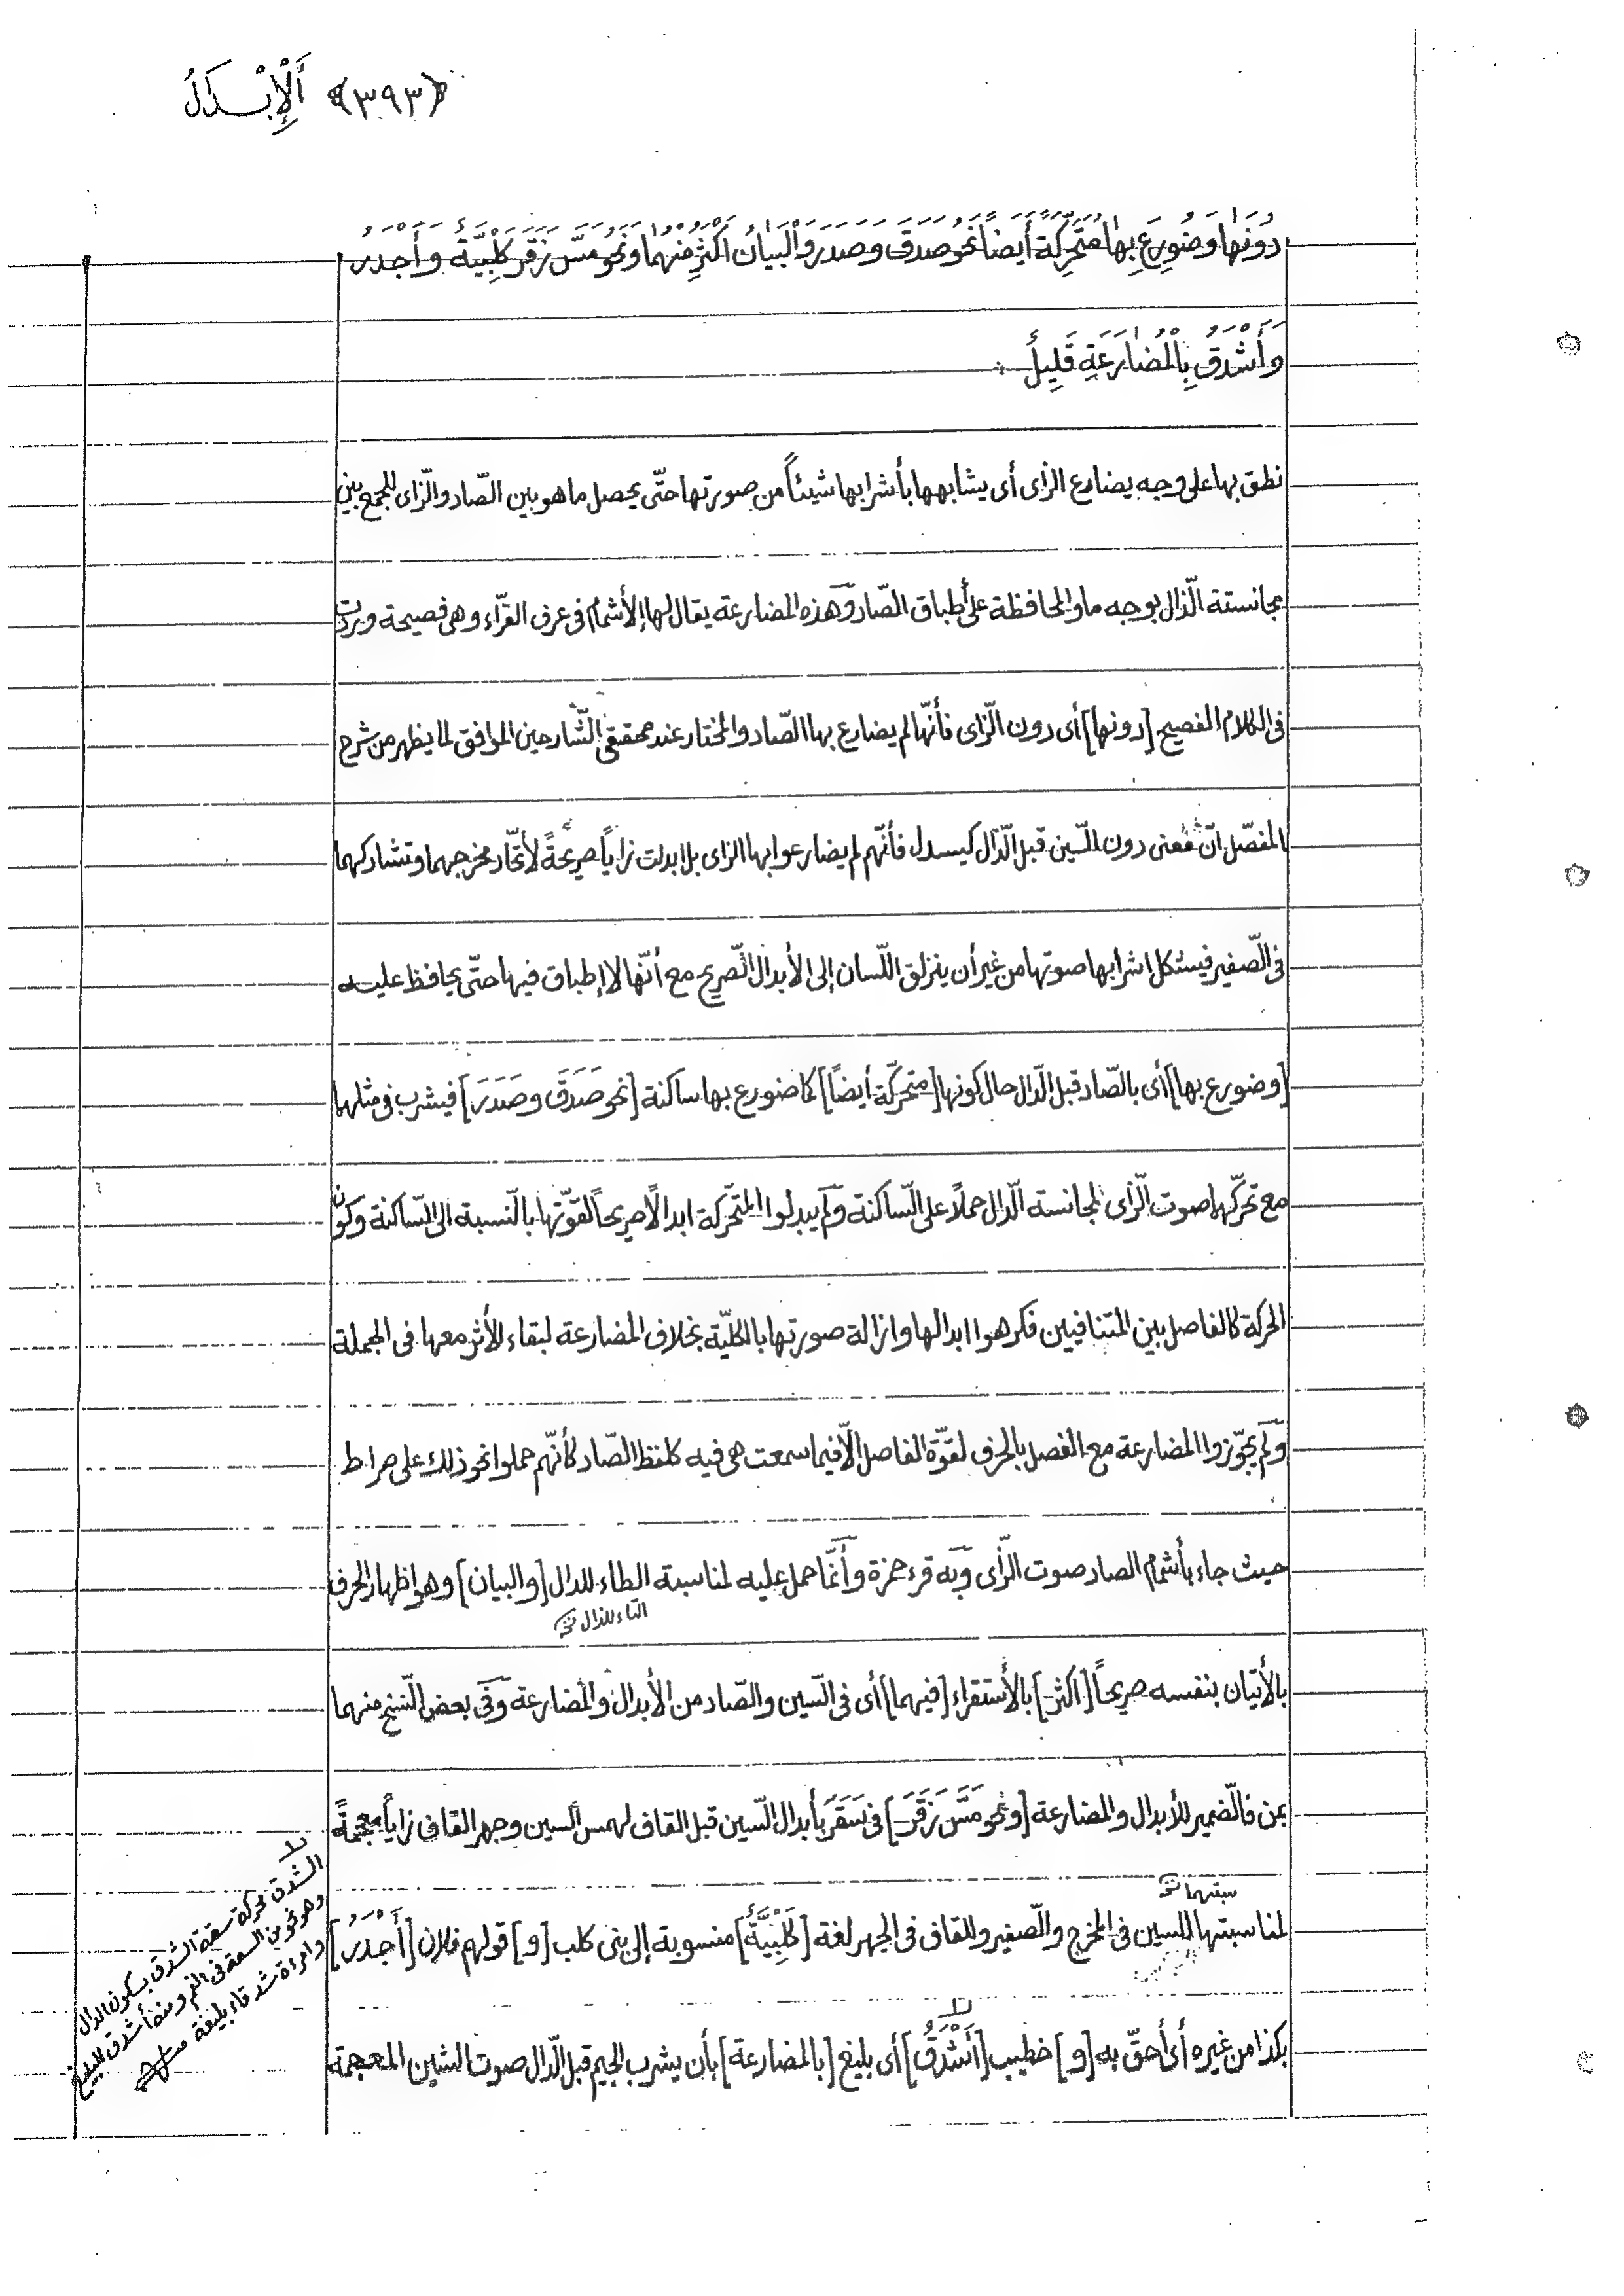 ﴿٣٩٣﴾ اَلْإِبْدَالُ
دُونَهٰا وَضُورِعَ بِهٰا مُتَحَرِّكَةً أَيضاً نَحْوُ صَدَقَ وَصَدَرَ وَالْبَيٰانُ اَكْثَرُ مِنْهُمٰا وَنَحْوُ مَسَّ زَقَرَ كَلْبِيَّةٌ وَأَجْدَرُ
وَأَشْدَقُ بِالْمُضٰارَعَةِ قَلِيلٌ
نطق بها على وجه يضارع الزّاى أى يشابهها بأشرابها شيئاً من صورتها حتّى يحصل ما هو بين الصّاد والزّاى للجمع بين
مجانستة الدّال بوجه ما والمحافظة على أطباق الصّاد وهذه المضارعة يقال لها الأشمام فى عرف القرّاء وهى فصيحة وردت
فى الكلام الفصيح [دونها] أى دون الزّاى فأنّها لم يضارع بها الصّاد والمختار عند محققى الشّارحين الموافق لما يظهر من شرح
المفصّل انّ معنى دون السّين قبل الدّال كيسدل فأنّهم لم يضارعوا بها الزاى بل ابدلت زاياً صريحةً لأتّحاد مخرجهما وتشاركهما
فى الصّفير فيشكل اشرابها صوتها من غير أن ينزلق اللّسان إلى الأبدال الصّريح مع أنّها لا إطباق فيها حتّى يحافظ عليه
[وضورع بها] أى بالصّاد قبل الدّال حال كونها [متحرّكة أيضاً] كما ضورع بها ساكنة [نحو صَدَقَ وصَدَرَ] فيشرب فى مثلها
مع تحرّكها صوت الزّاى لمجانسته الدّال حملاً على السّاكنة ولم يبدلوا المتحّركة ابدالاً صريحاً لقوّتها بالنّسبة الى السّاكنة وكون
الحركة كالفاصل بين المتنافيين فكرهوا ابدالها وازالة صورتها بالكليّة بخلاف المضارعة لبقاء الأثر معها فى الجملة
ولم يجوّزوا المضارعة مع الفصل بالحرف لقوّة الفاصل الّا فيما سمعت هى فيه كلفظ الصّاد كأنّهم حملوا نحو ذلك على صراط
حيث جاء بأشمام الصاد صوت الزّاى وبه قرء حمزة وأنّما حمل عليه لمناسبة الطاء للدال [والبيان] وهو اظهار الحرف
التاء للذال خ
بالأتيان بنفسه صريحاً [اكثر] بالأستقراء [فيهما] أى فى السّين والصّاد من الأبدال والمضارعة وفى بعض النّسخ منهما
بمن فالضّمير للأبدال والمضارعة [ونحو مَسَّ زَقَرَ] فى سَقَرَ بأبدال السّين قبل القاف لهمس السين وجهر القاف زاياً معجمةً
سبتهما خ
لمناسبتها السين فى المخرج والصّفير وللقاف فى الجهر لغة [كَلْبِيَّةٌ] منسوبة إلى بنى كلب [و] قولهم فلان [أَجْدَرُ]
بكذا من غيره أى أحقّ به [و] خطيب [أَشْدَقُ] أى بليغ [بالمضارعة] بأن يشرب الجيم قبل الدّال صوت الشين المعجمة
الشدق محركة سعة الشدق بسكون الدال
وهو نحو من السعة فى الفم ومنه أشدق للبليغ
وامرءة شدقاء بليغة